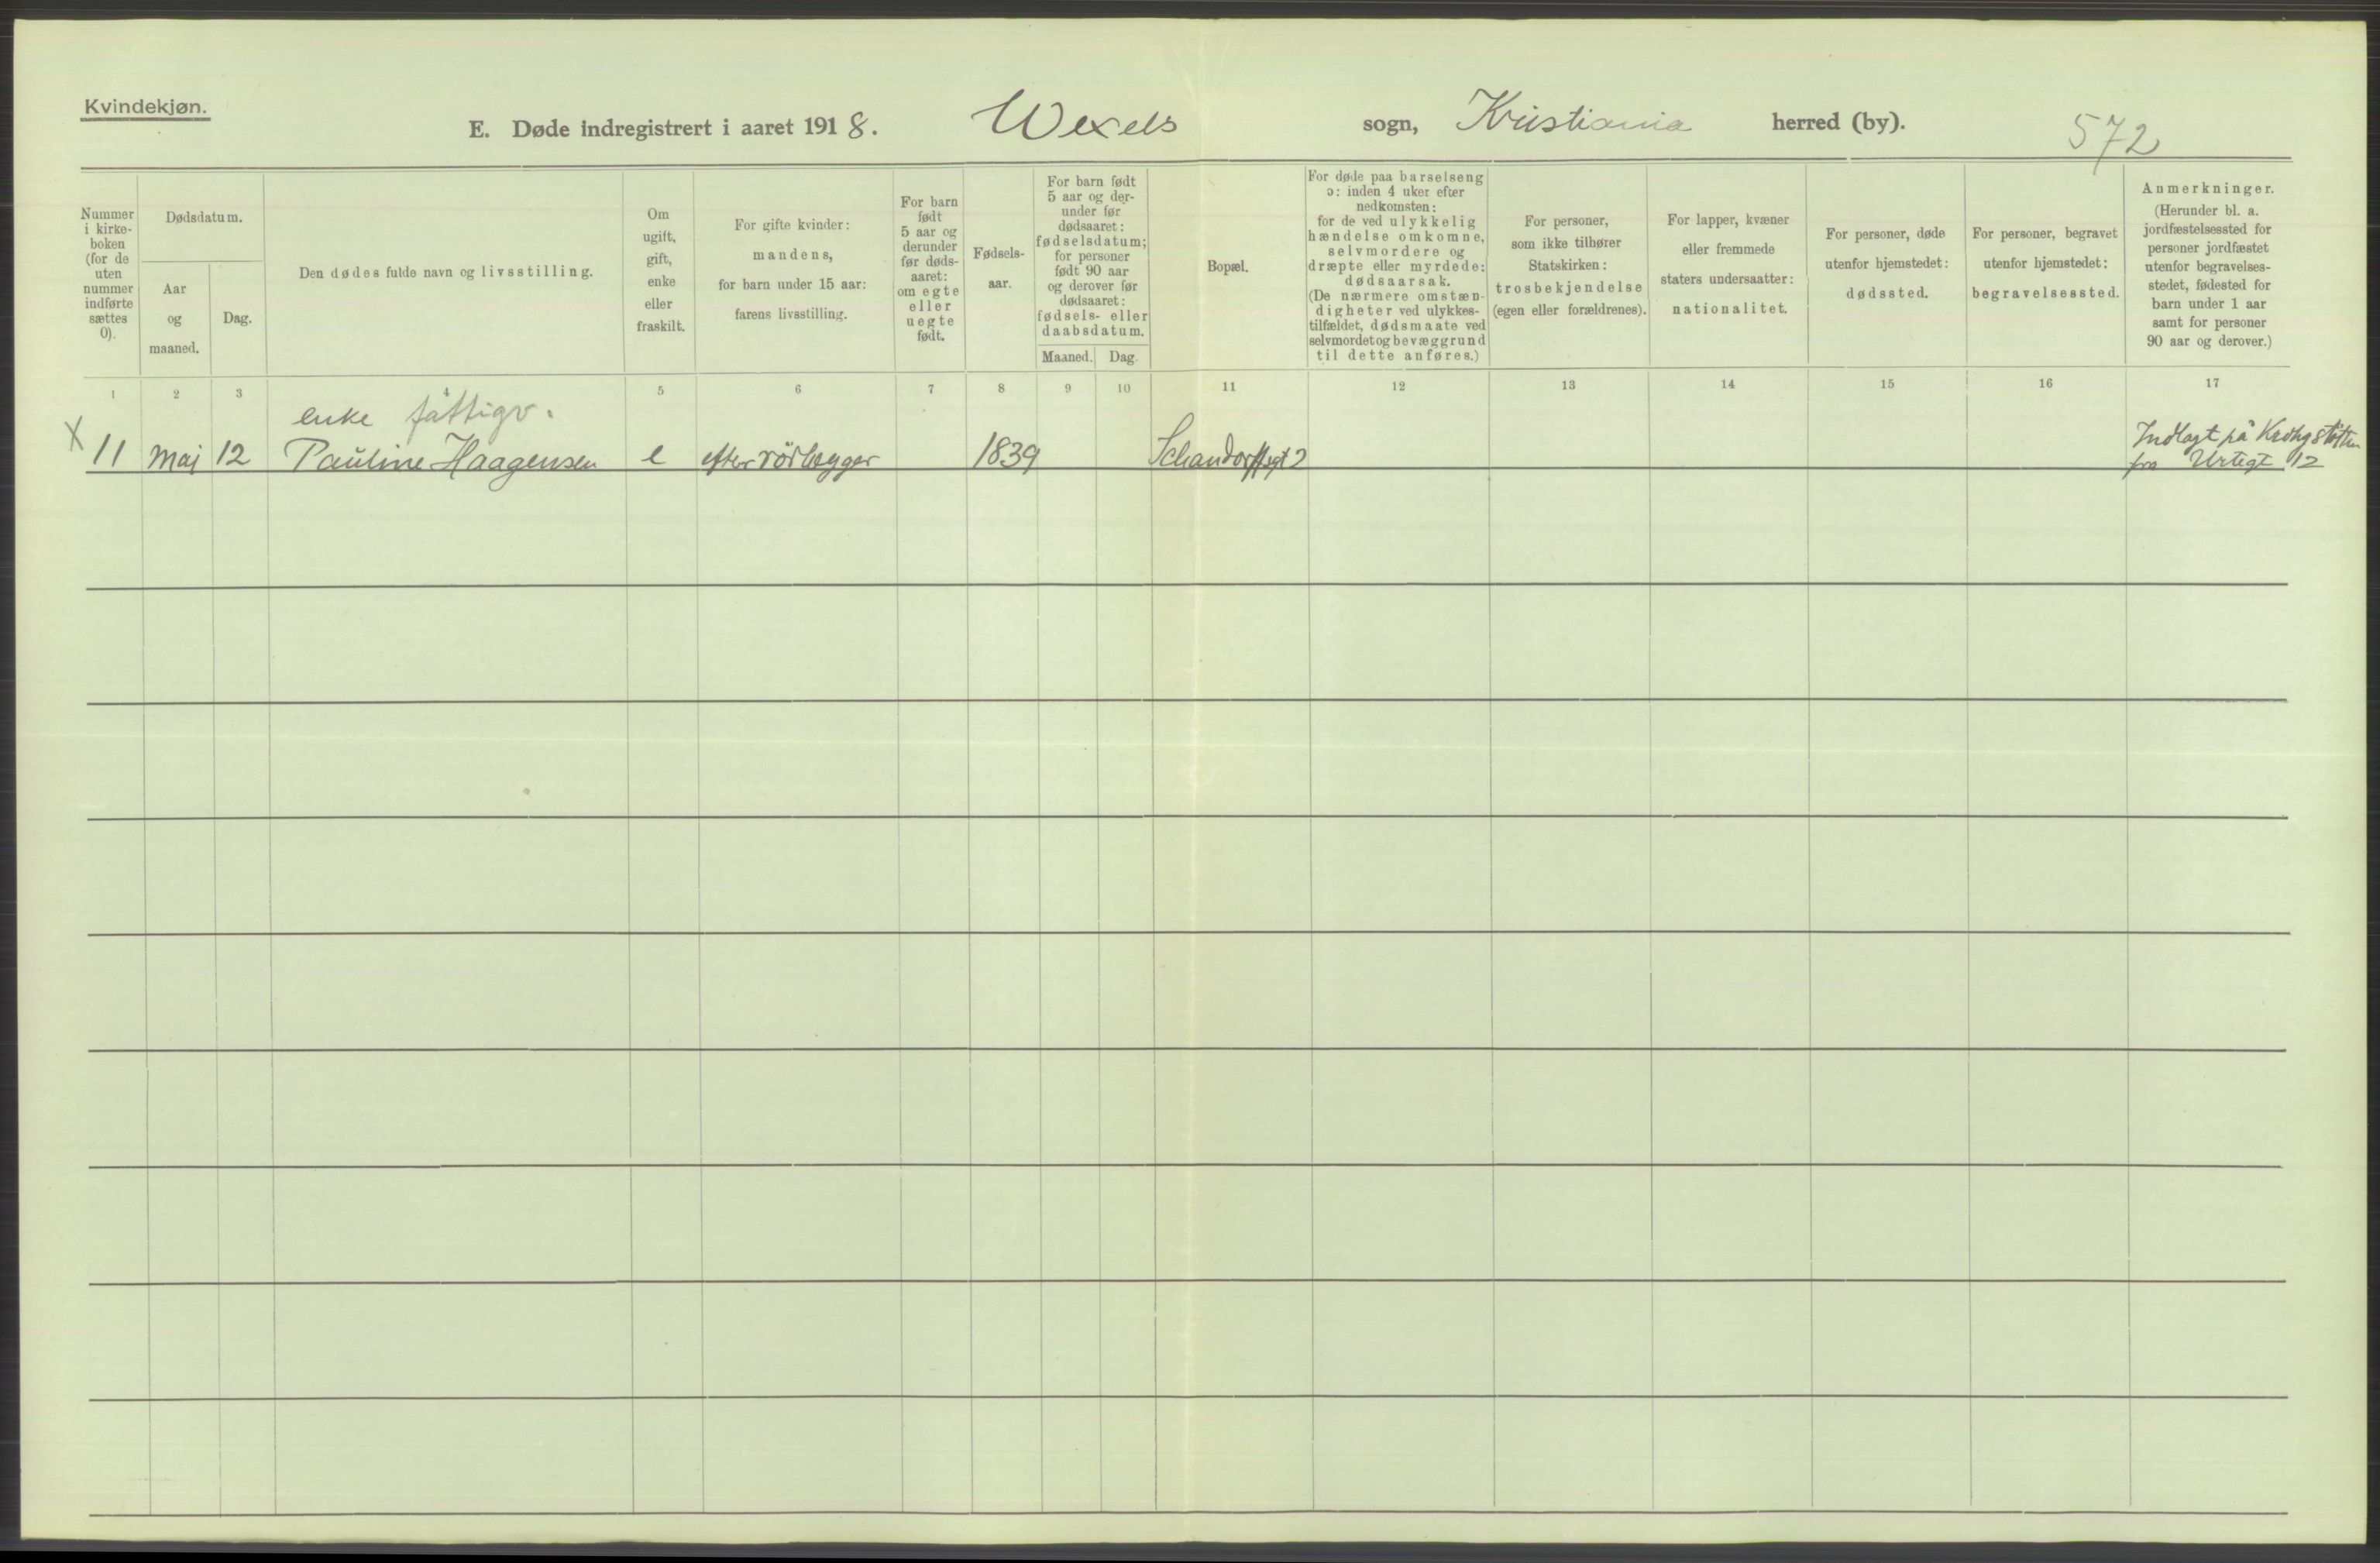 Kvindekjøn.
E. Døde indregistrert i aaret 1918. Wexels sogn, Kristiania herred (by).
572
Nummer
i kirke-
boken
(for de
uten
nummer
indførte
sættes
0).
Dødsdatum.
Aar
og
maaned.
Dag.
Den dødes fulde navn og livsstilling.
Om
ugift,
gift,
enke
eller
fraskilt.
For gifte kvinder:
mandens,
for barn under 15 aar:
farens livsstilling.
For barn
født
5 aar og
derunder
før døds-
aaret:
om egte
eller
uegte
født.
Fødsels-
aar.
For barn født
5 aar og der-
under før
dødsaaret:
fødselsdatum;
for personer
født 90 aar
og derover før
dødsaaret:
fødsels- eller
daabsdatum.
Maaned. Dag.
Bopæl.
For døde paa barselseng
ɔ: inden 4 uker efter
nedkomsten:
for de ved ulykkelig
hændelse omkomne,
selvmordere og
dræpte eller myrdede:
dødsaarsak.
(De nærmere omstæn-
digheter ved ulykkes-
tilfældet, dødsmaate ved
selvmordet og bevæggrund
til dette anføres.)
For personer,
som ikke tilhører
Statskirken:
trosbekjendelse
(egen eller forældrenes).
For lapper, kvæner
eller fremmede
staters undersaatter:
nationalitet.
For personer, døde
utenfor hjemstedet:
dødssted.
For personer, begravet
utenfor hjemstedet:
begravelsessted.
Anmerkninger.
(Herunder bl. a.
jordfæstelsessted for
personer jordfæstet
utenfor begravelses-
stedet, fødested for
barn under 1 aar
samt for personer
90 aar og derover.)
1 2 3 4 5 6 7 8 9 10 11 12 13 14 15 16 17
enke fattigv.
X 11 Mai 12 Pauline Haagensen e efter rørlægger 1839 Schandorffsgt 2
Indlagt på Krohgstøtten
fra Urtegt 12